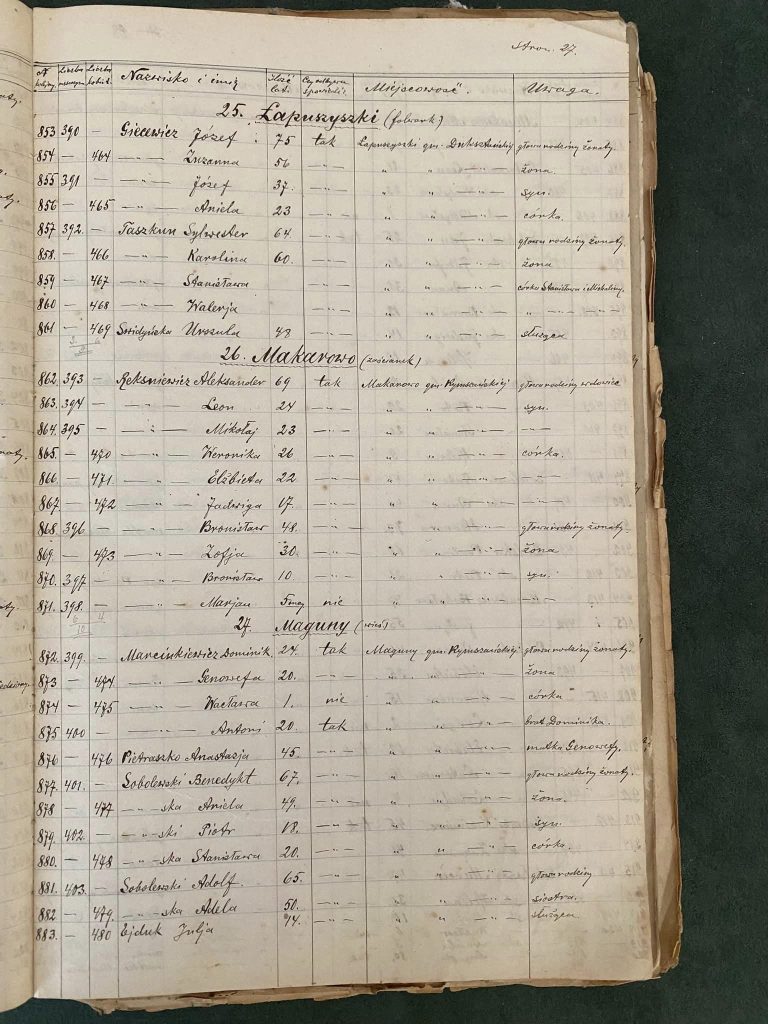 Stron. 27.
N kolejny. Liczba mężczyzn. Liczba kobiet. Nazwisko i imię Ilość lat. Czy odbywa spowiedź. Miejscowość. Uwaga.
25. Łapuszyszki (folwark)
853 390 — Giecewicz Józef 75 tak Łapuszyszki gm. Duksztańskiej głowa rodziny żonaty.
854 — 464 — " — Zuzanna 56 — " — " " — " — żona.
855 391 — — " — Józef 37. — " — " " — " — syn.
856 — 465 — " — Aniela 23 — " — " " — " — córka.
857 392. — Taszkun Sylwester 64 — " — " " — " — głowa rodziny żonaty.
858. — 466 — " — Karolina 60. — " — " " — " — żona
859 — 467 — " — Stanisława — " — " " — " — córka Stanisława i Michaliny.
860 — 468 — " — Walerja — " — " " — " — " — " —
861 — 469 Swidyńska Urszula 48 — " — " " — " — służąca
26. Makarowo (zaścianek)
862. 393 — Reksniewicz Aleksander 69 tak Makarowo gm. Rymszańskiej głowa rodziny wdowiec
863. 394 — — " — Leon 24 — " — " " — " — syn.
864. 395 — — " — Mikołaj 23 — " — " " — " — — " —
865. — 470 — " — Weronika 26 — " — " " — " — córka.
866. — 471. — " — Elżbieta 22 — " — " " — " — — " —
867. — 472 — " — Jadwiga 17. — " — " " — " — — " —
868. 396 — — " — Bronisław 48. — " — " " — " — głowa rodziny żonaty.
869. — 473 — " — Zofja 30. — " — " " — " — żona
870. 397. — — " — Bronisław 10. — " — " " — " — syn.
871. 398. — — " — Marjan 5 mcy nie " " — " — — " —
27. Maguny (wieś)
872. 399. — Marcinkiewicz Dominik. 24. tak Maguny gm. Rymszańskiej głowa rodziny żonaty.
873 — 474. — " — Genowefa 20. — " — " " — " — żona
874 — 475 — " — Wacława 1. nie " " — " — córka
875 400 — — " — Antoni 20. tak " " — " — brat Dominika.
876 — 476 Pietraszko Anastazja 45. — " — " " — " — matka Genowefy.
877. 401. — Sobolewski Benedykt 67. — " — " " — " — głowa rodziny żonaty.
878 — 477 — " — ska Aniela 49. — " — " " — " — żona.
879. 402. — — " — ski Piotr 18. — " — " " — " — syn.
880. — 478 — " — ska Stanisława 20. — " — " " — " — córka.
881. 403. — Sobolewski Adolf. 65. — " — " " — " — głowa rodziny
882 — 479. — " — ska Adela 50. — " — " " — " — siostra.
883. — 480 Ejduk Julja 14. — " — " " — " — służąca